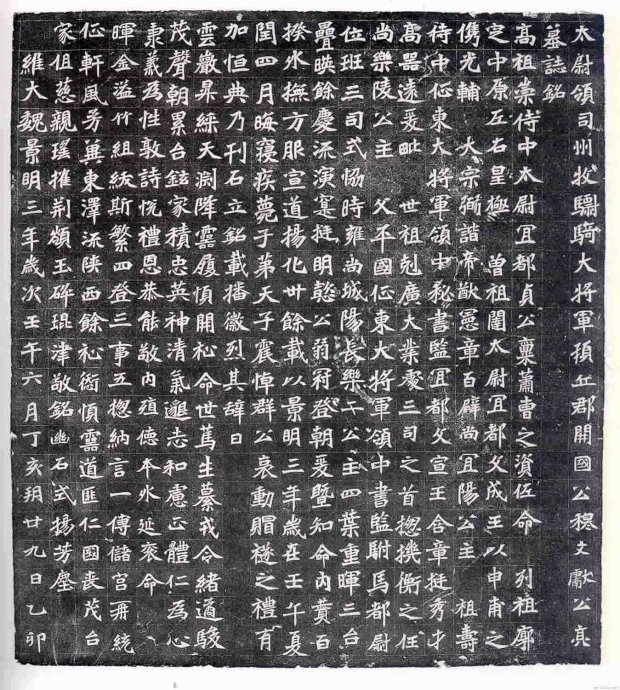 太尉領司州牧驃騎大將軍頓丘郡開國公穆文獻公亮
墓誌銘
高祖崇侍中太尉冝都貞公稟蕭曹之資佐命 列祖廓
定中原左右皇極 曾祖闥太尉冝都文成王以申甫之
儁光輔 大宗弼諧帝猷憲章百辟尚冝陽公主 祖壽
侍中征東大將軍領中祕書監冝都文宣王含章挺秀才
高器遠爰毗 世祖剋廣大業處三司之首揔機衡之任
尚樂陵公主 父平國征東大將軍領中書監駙馬都尉
位班三司式恊時雍尚城陽長樂二公主四葉重暉三台
疊暎餘慶流演寔挺明懿公弱冠登朝爰曁知命內賛百
揆外撫方服宣道揚化卅餘載以景明三年歲在壬午夏
閏四月晦寢疾薨于第天子震悼群公哀動賵襚之禮有
加恒典乃刊石立銘載播徽烈其辭曰
雲巖昇綵天淵降靈履順開祉命世篤生纂戎令緒道駿
茂聲朝累台鉉家積忠英神清氣邈志和慮正體仁爲心
秉義爲性敦詩悅禮恩恭能敬內殖德本外延衮命
暉金溢竹組紱斯繁四登三事五揔納言一傅儲宮再統
征軒風芳冀東澤流陝西餘祉銜順靈道匪仁國喪茂台
家徂慈親瑤摧荊頷玉碎琨津敬銘幽石式揚芳塵
維大魏景明三年歲次壬午六月丁亥朔廿九日乙卯